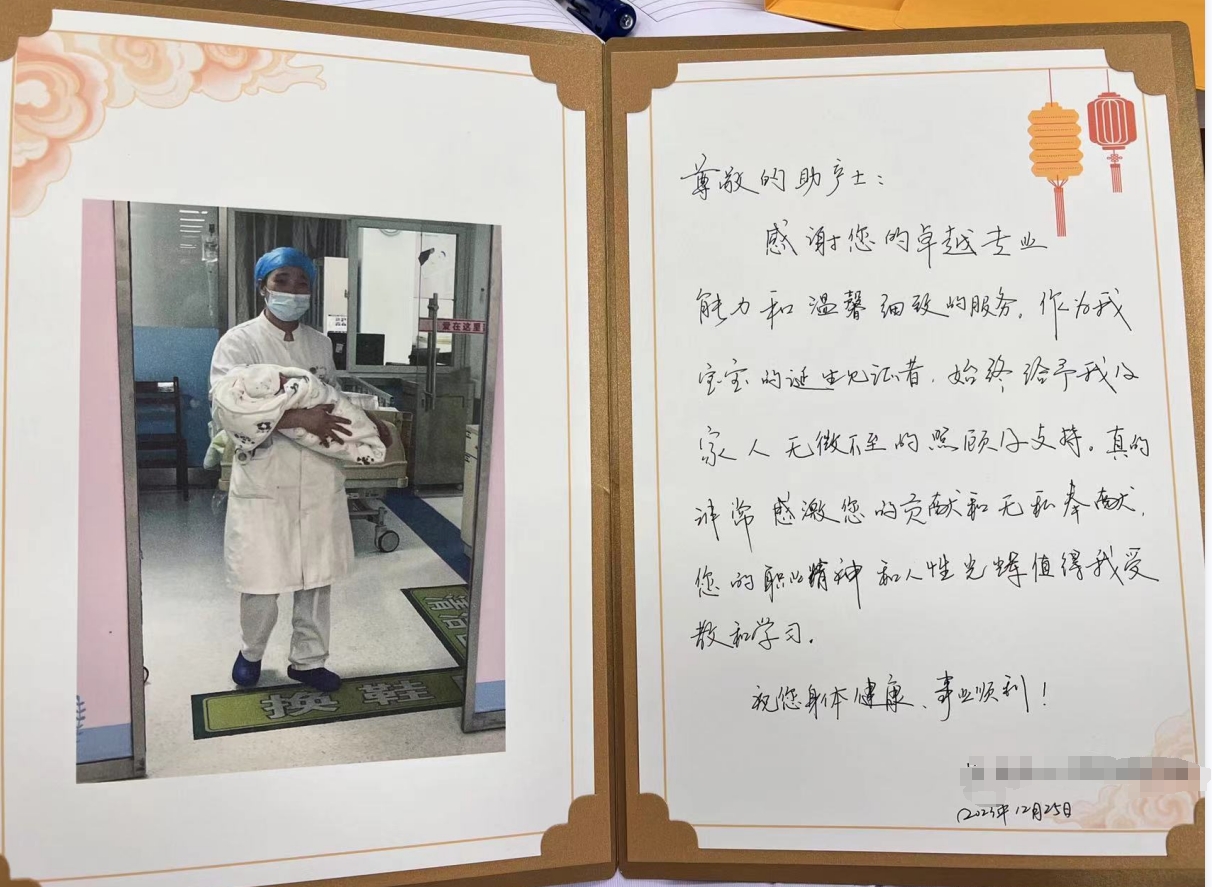 爱在这里
换鞋
尊敬的助产士：
感谢您的卓越专业
能力和温馨细致的服务，作为我
宝宝的诞生见证者，始终给予我及
家人无微不至的照顾及支持。真的
非常感激您的贡献和无私奉献，
您的职业精神和人性光辉值得我受
敬和学习。
祝您身体健康、事业顺利！
2023年12月25日